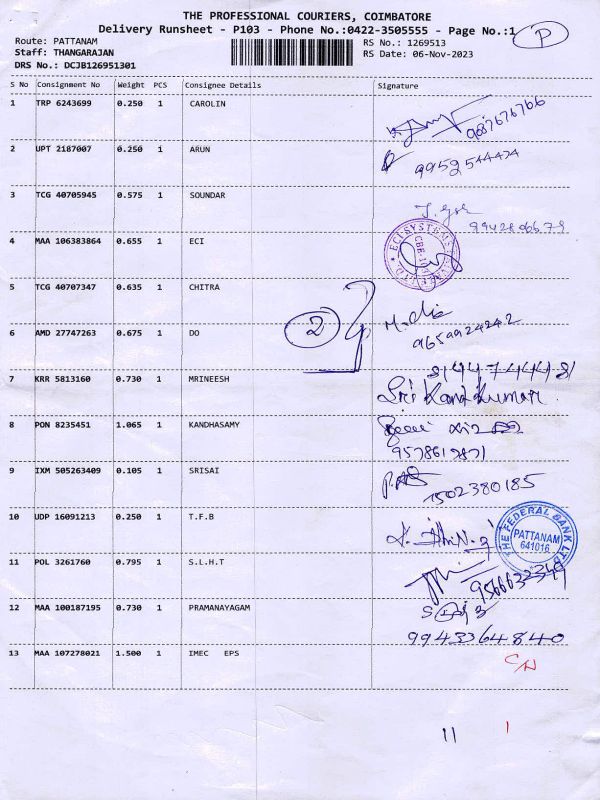 THE PROFESSIONAL COURIERS, COIMBATORE
Delivery Runsheet - P103 - Phone No.:0422-3505555 - Page No.:1
P
Route: PATTANAM
RS No.: 1269513
Staff: THANGARAJAN
RS Date: 06-Nov-2023
DRS No.: DCJB126951301
S No Consignment No Weight PCS Consignee Details Signature
1 TRP 6243699 0.250 1 CAROLIN
2 UPT 2187007 0.250 1 ARUN
3 TCG 40705945 0.575 1 SOUNDAR
4 MAA 106383864 0.655 1 ECI
ECI SYSTEMS
5 TCG 40707347 0.635 1 CHITRA
2
9659924242
6 AMD 27747263 0.675 1 DO
8144744481
7 KRR 5813160 0.730 1 MRINEESH
Sri Kand Kumar
8 PON 8235451 1.065 1 KANDHASAMY
9 IXM 505263409 0.105 1 SRISAI
7502380185
10 UDP 16091213 0.250 1 T.F.B
THE FEDERAL BANK LTD
PATTANAM
641016
11 POL 3261760 0.795 1 S.L.H.T
12 MAA 100187195 0.730 1 PRAMANAYAGAM
9943364840
13 MAA 107278021 1.500 1 IMEC EPS
11 1